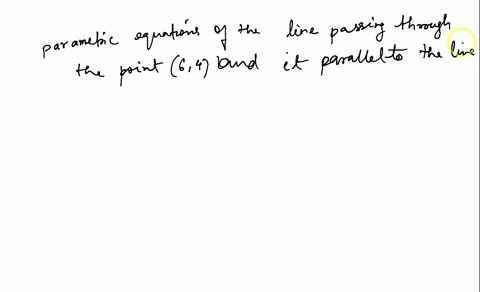 parametric equations of the line passing through
the point (6,4) and it parallel to the line